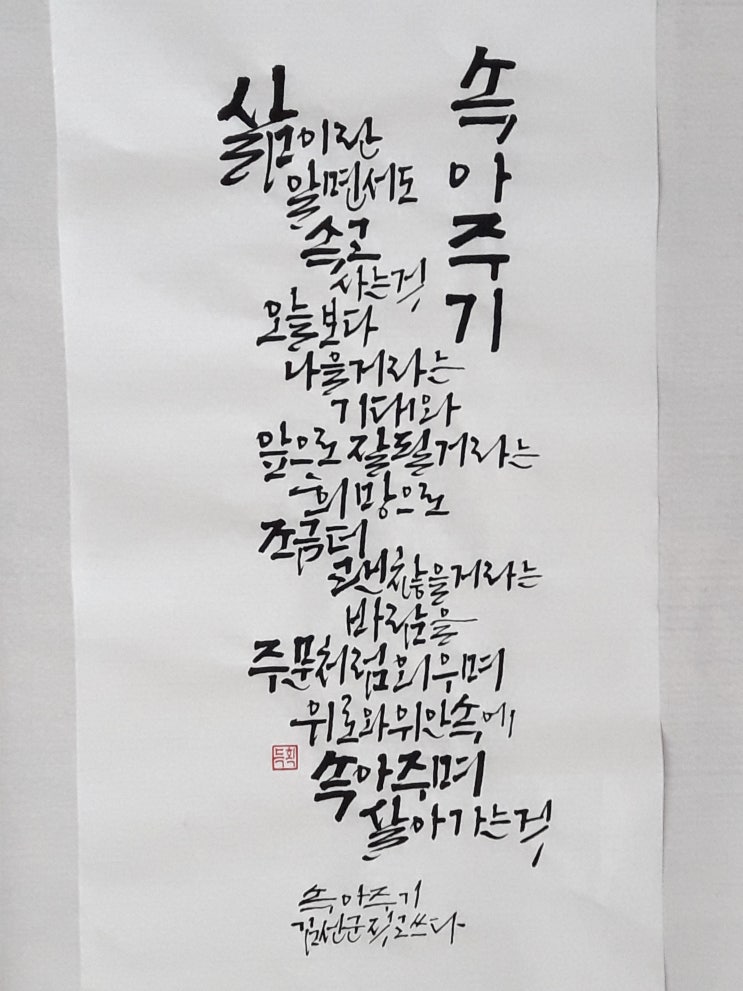 속아주기
삶이란
알면서도
속고
사는것
오늘보다
나을거라는
기대와
앞으로 잘될거라는
희망으로
조금더
괜찮을거라는
바램을
주문처럼 외우며
위로와 위안속에
속아주며
살아가는것
속아주기
김선군 짓고쓰다